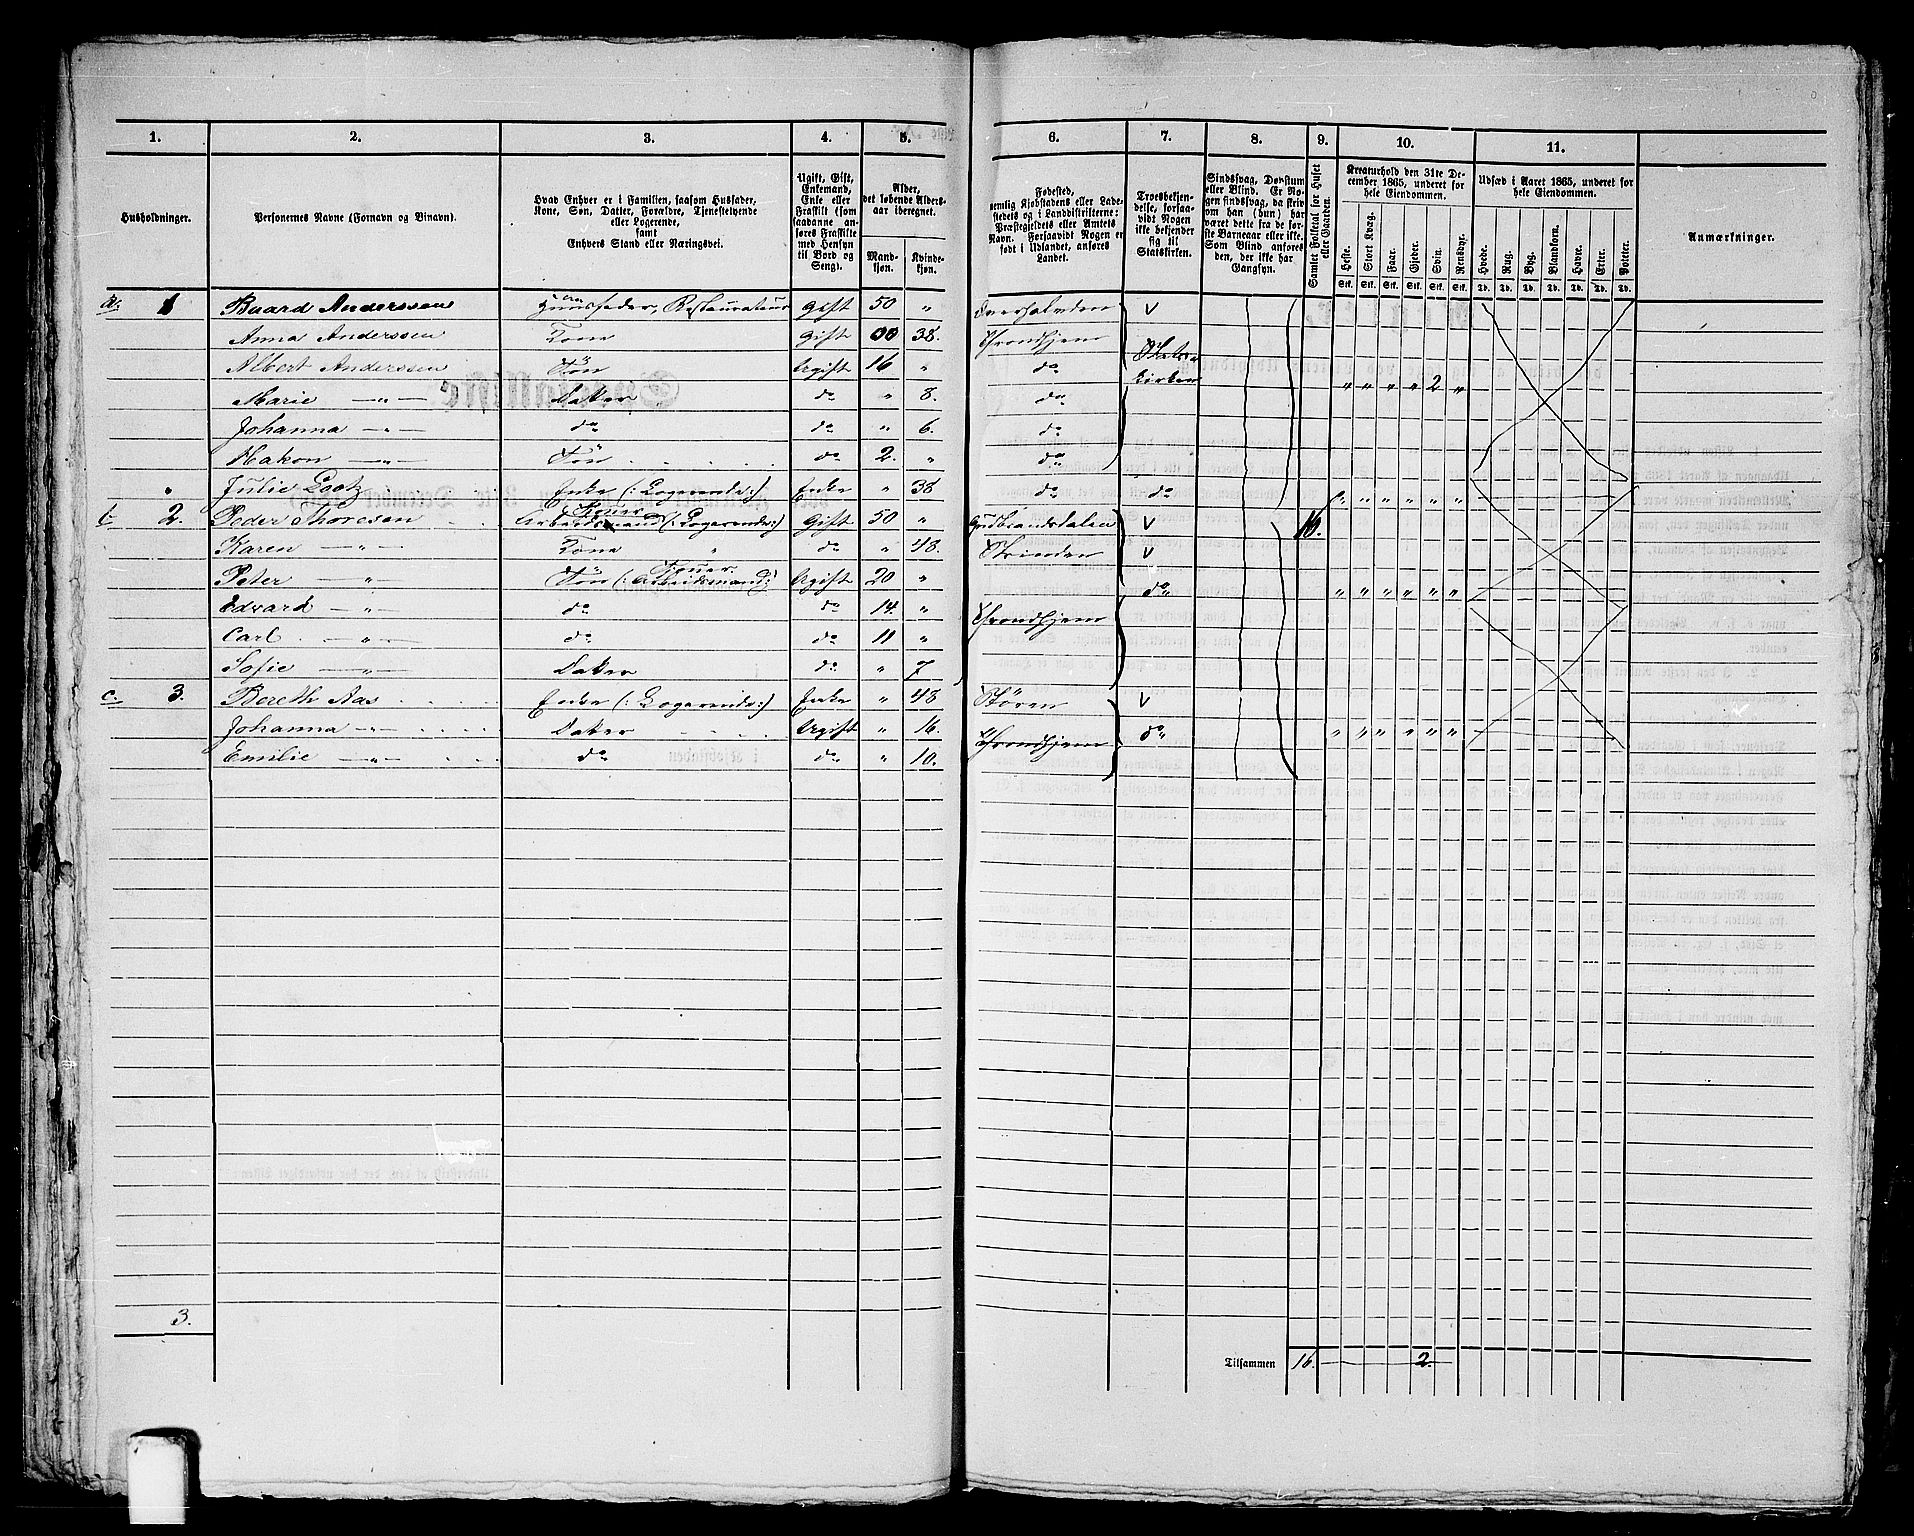 1. 2. 3. 4. 5. 6. 7. 8. 9. 10. 11.
Husholdninger.
Personernes Navne (Fornavn og Binavn).
Hvad Enhver er i Familien, saasom Husfader,
Kone, Søn, Datter, Forældre, Tjenestetyende
eller Logerende,
samt
Enhvers Stand eller Næringsvei.
Ugift, Gift,
Enkemand,
Enke eller
Fraskilt (som
saadanne an-
føres Fraskilte
med Hensyn
til Bord og
Seng).
Alder,
det løbende Alders-
aar iberegnet.
Mand-
kjøn.
Kvinde-
kjøn.
Fødested,
nemlig Kjøbstadens eller Lade-
stedets og i Landdistrikterne:
Præstegjeldets eller Amtets
Navn. Forsaavidt Nogen er
født i Udlandet, anføres
Landet.
Troesbekjen-
delse, forsaa-
vidt Nogen
ikke bekjender
sig til
Statskirken.
Sindssvag, Døvstum
eller Blind. Er No-
gen sindssvag, da skriv
om han (hun) har
været dette fra de før-
ste Barneaar eller ikke.
Som Blind anføres
den, der ikke har
Gangsyn.
Samlet Folketal for Huset
eller Gaarden.
Kreaturhold den 31te De-
cember 1865, underet for
hele Eiendommen.
Heste. Stort Kvæg. Faar. Gjeder. Svin. Rensdyr.
Stk. Stk. Stk. Stk. Stk. Stk.
Udsæd i Aaret 1865, underet for
hele Eiendommen.
Hvede. Rug. Byg. Blandkorn. Havre. Erter. Poteter.
Td. Td. Td. Td. Td. Td. Td.
Anmærkninger.
a. 1 Baard Anderssen Huusfader, Restaurateur Gift 50 " Overhalvden v
Anna Anderssen Kone Gift 38. Throndhjem Stats-
Albert Anderssen Søn Ugift 16 " do kirken
Marie — " — Datter do " 8. do " " " " 2 "
Johanna — " — do do " 6. do
Hakon — " — Søn do 2. " do
" Julie Lootz Enke (: Logerende :) Enke " 38 do do " " " " " "
b. 2. Peder Thoresen Arbeidsmand (: Logerende :) Gift 50 " Gudbrandsdalen v 16.
Karen — " — Kone " do " 48. Strinden v
Peter — " — Søn (: Arbeidsmand :) Ugift 20 " do " " " " " "
Edvard — " — do do 14. " Throndhjem
Carl — " — do do 11 "
Sofie — " — Datter do " 7
c. 3. Bereth Aas Enke (: Logerende :) Enke " 48 Støren v
Johanna — " — Datter Ugift " 16. Throndhjem do " " " " " "
Emilie — " — do do " 10.
3.
Tilsammen 16. 2.